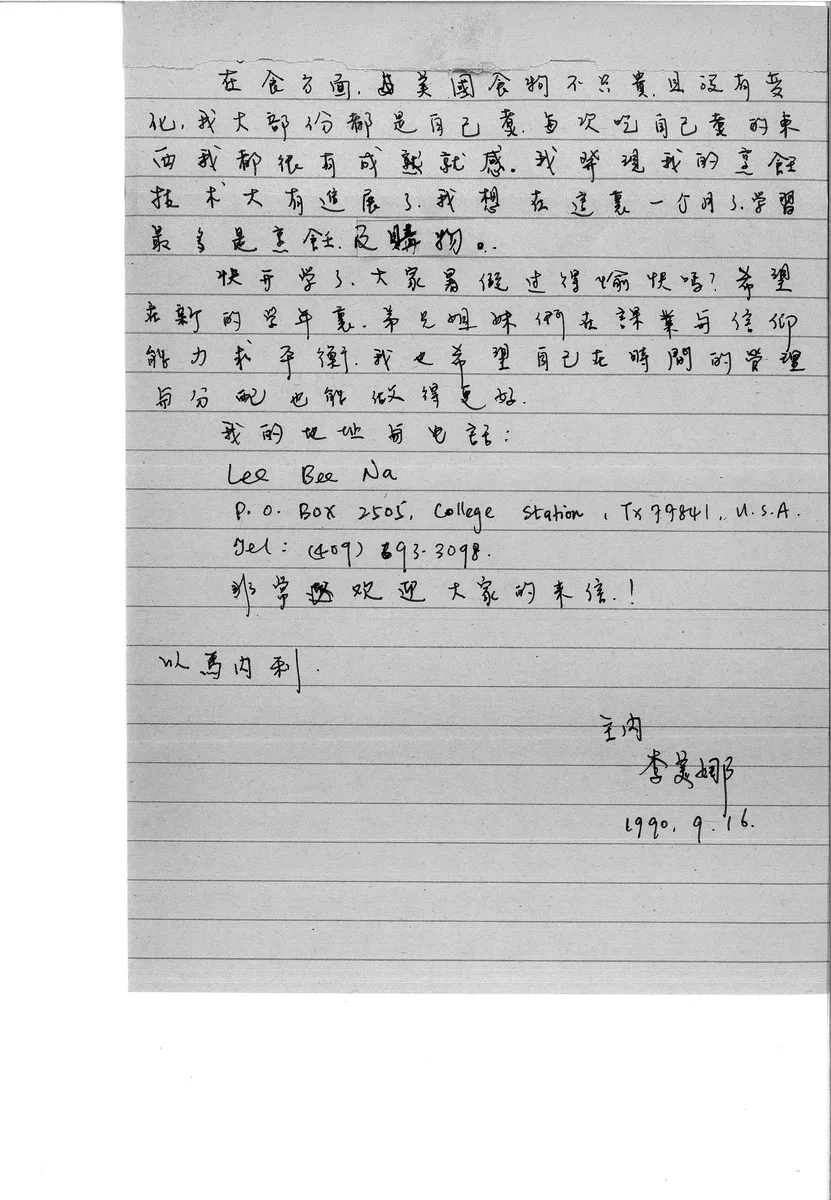 在食方面,美國食物不只貴,且沒有变
化,我大部份都是自己煮,每次吃自己煮的東
西我都很有成就感。我發現我的烹飪
技术大有進展了,我想在這裏一个月了,学習
最多是烹飪,及購物。
快开学了,大家暑假过得愉快嗎?希望
在新的学年裏,弟兄姐妹們在課業与信仰
能力求平衡,我也希望自己在時間的管理
与分配也能做得更好.
我的地址与电話:
Lee Bee Na
P.O. BOX 2505, College Station, TX 77841, U.S.A.
Tel: (409) 693-3098.
非常欢迎大家的来信.!
以馬内利.
主内
李美娜
1990. 9. 16.